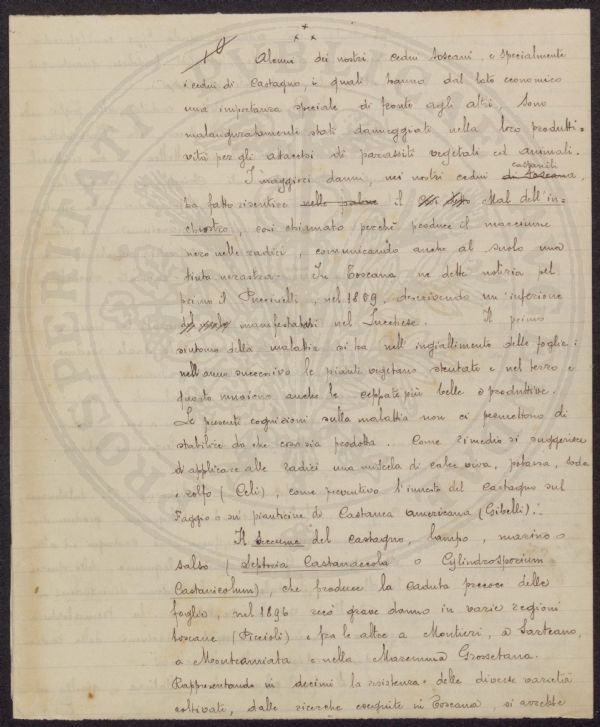 Alcuni dei nostri cedui toscani e specialmente
i cedui di Castagno, i quali hanno dal lato economico
una importanza speciale di fronte agli altri, sono
malauguratamente stati danneggiati nella loro produtti=
vità per gli attacchi di parassiti vegetali ed animali.
I maggiori danni, nei nostri cedui di Toscana castanili
ha fatto risentire nelle il Mal dell'in=
chiostro, così chiamato perchè produce il marciume
nero nelle radici, comunicando anche al suolo una
tinta nerastra. In Toscana ne dette notizia pel
primo il Puccinelli, nel 1859, descrivendo un'infezione
manifestatasi nel Lucchese. Il primo
sintomo della malattia si ha nell'ingiallimento delle foglie:
nell'anno successivo le piante vegetano stentate e nel terzo e
quarto muoiono anche le ceppate più belle e produttive.
Le presenti cognizioni sulla malattia non ci permettono di
stabilire da che cosa sia prodotta. Come rimedio si suggerisce
di applicare alle radici una miscela di calce viva, potassa, soda
e zolfo (Celi), come preventivo l'innesto del Castagno sul
Faggio o su pianticine di Castanea americana (Gibelli).
Il Seccume del castagno, lampo, marino o
salso (Septoria Castanaecola o Cylindrosporium
Castanicolum), che produce la caduta precoce delle
foglie, nel 1896 recò grave danno in varie regioni
toscane (Piccioli) e fra le altre a Montieri, a Sarteano,
a Montamiata e nella Maremma Grossetana.
Rappresentando in decimi la resistenza delle diverse varietà
coltivate, dalle ricerche eseguite in Toscana, si avrebbe